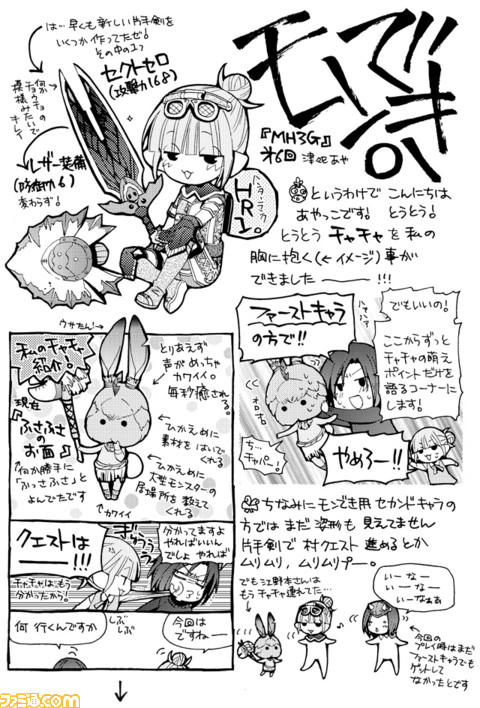 モンでき。
『MH3G』
オ6回 津々巳あや
は…早くも新しい片手剣を
いくつか作ってたぜ!
その中の1つ
セクトセロ
(攻撃力168)
何かチョウチョみたいで
模様みたいのキレイ
レザー装備
(防御力6)
変わらず。
ハンターランク
HR1。
というわけで こんにちは
あやっこです! とうとう!
とうとう チャチャ を 私の
胸に抱く(←イメージ)事が
できました――!!!
ファーストキャラ
の方で!!
でもいいの!
ここからずっと
チャチャの萌え
ポイントだけを
語るコーナーに
します!
ハァハァ
オロオロ
ち…
チャバー。
やめろー!!
私のチャチャ
紹介。
ウサたん!
とりあえず
声がめっちゃ
カワイイ。
毎秒癒される。
現在
『ふさふさ
のお面』
何か勝手に
「ふっさふさ」と
よんでたです
ひかえめに
素材をはいで
くれる
ひかえめに
大型モンスターの
居場所を教えて
くれる
カワイイ
クエストは
――!!!
ぎゅうう
分かってますよ
やればいいん
でしょ やれば
チャチャはもう
分かったから!
何 行くんですか
しぶしぶ
今回は
ですね―
ちなみに モンでき用 セカンドキャラの
方では まだ 姿形も 見えてません
片手剣で 村クエスト 進めるとか
ムリムリ、ムリムリプー。
でも江野本さんは
もう チャチャ連れてた…
いーなー
いーなー
いーなぁぁ
今回の
プレイ時はまだ
ファーストキャラでも
ゲットして
なかったとです
ファミ通.com